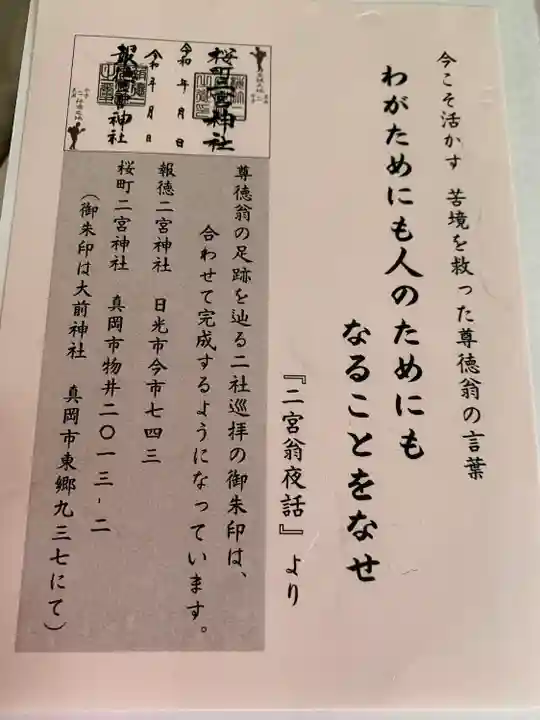 今こそ活かす 苦境を救った尊徳翁の言葉
わがためにも人のためにも
なることをなせ
『二宮翁夜話』より
桜町二宮神社
令和 年 月 日
令和 年 月 日
報徳二宮神社
尊徳翁の足跡を辿る二社巡拝の御朱印は、
合わせて完成するようになっています。
報徳二宮神社 日光市今市七四三
桜町二宮神社 真岡市物井二〇一三-二
(御朱印は大前神社 真岡市東郷九三七にて)